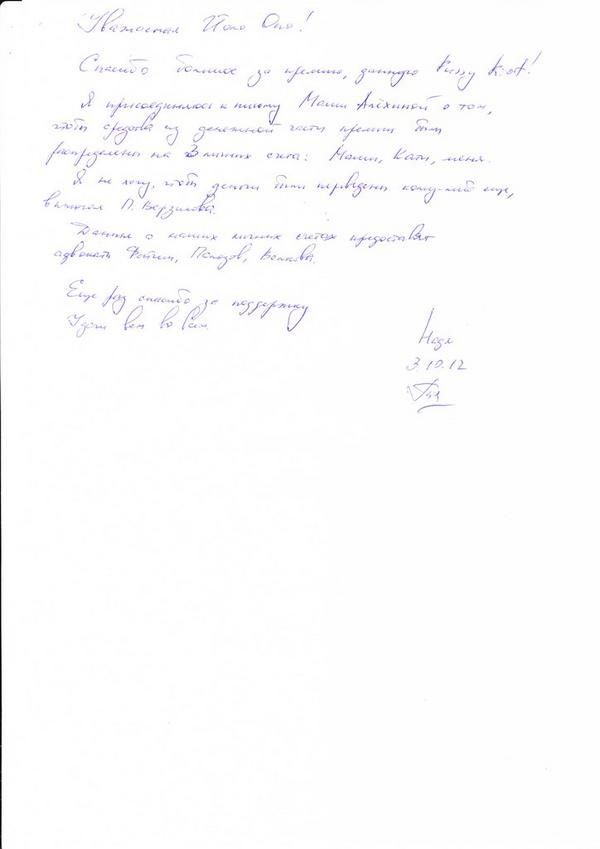 Уважаемая Йоко Оно!
Спасибо большое за премию, данную Pussy Riot!
Я присоединяюсь к письму Маши Алёхиной о том,
чтобы средства из денежной части премии были
распределены на 3 личных счета: Маши, Кати, меня.
Я не хочу, чтобы деньги были переведены кому-либо еще,
включая П. Верзилова.
Данные о наших личных счетах предоставят
адвокаты Фейгин, Полозов, Волкова.
Еще раз спасибо за поддержку
Удачи вам во всем
Надя
3.10.12